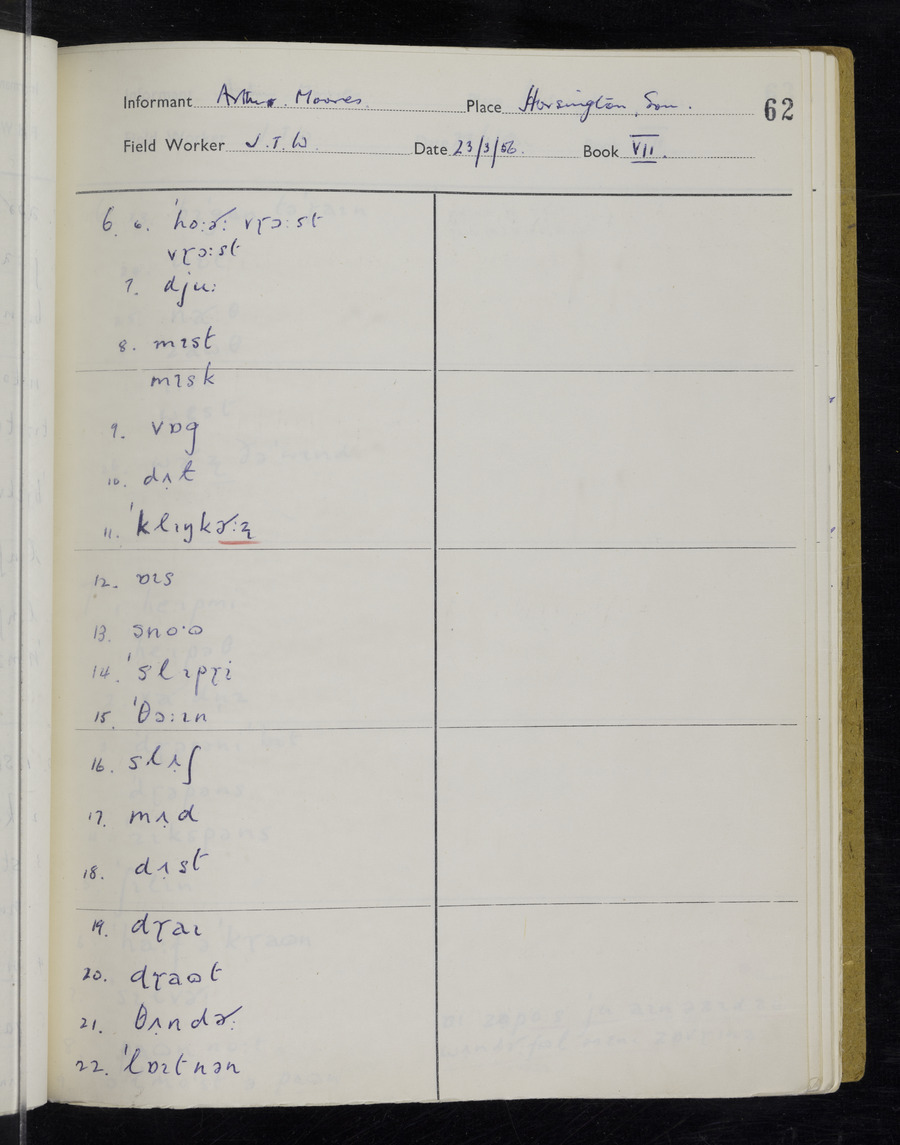 Informant Arthur Moores. Place Horsington, Som. 62
Field Worker J.T.W. Date 23/3/56. Book VII.
6. 6. ˈhoːɚː vɽɔːst
vɽɔːst
7. djuː
8. mɪst
mɪsk
9. vɒg
10. dʌ̣t
11. ˈklɪŋkɚːz̨
12. ɒɪs
13. snoˑʊ
14. ˈslɪpɽi
15. ˈθɔːɪn
16. slʌ̣ʃ
17. mʌ̣d
18. dʌ̣st
19. dɽaɪ
20. dɽaʊt
21. θʌ̣ndɚː
22. ˈlɒɪtnən